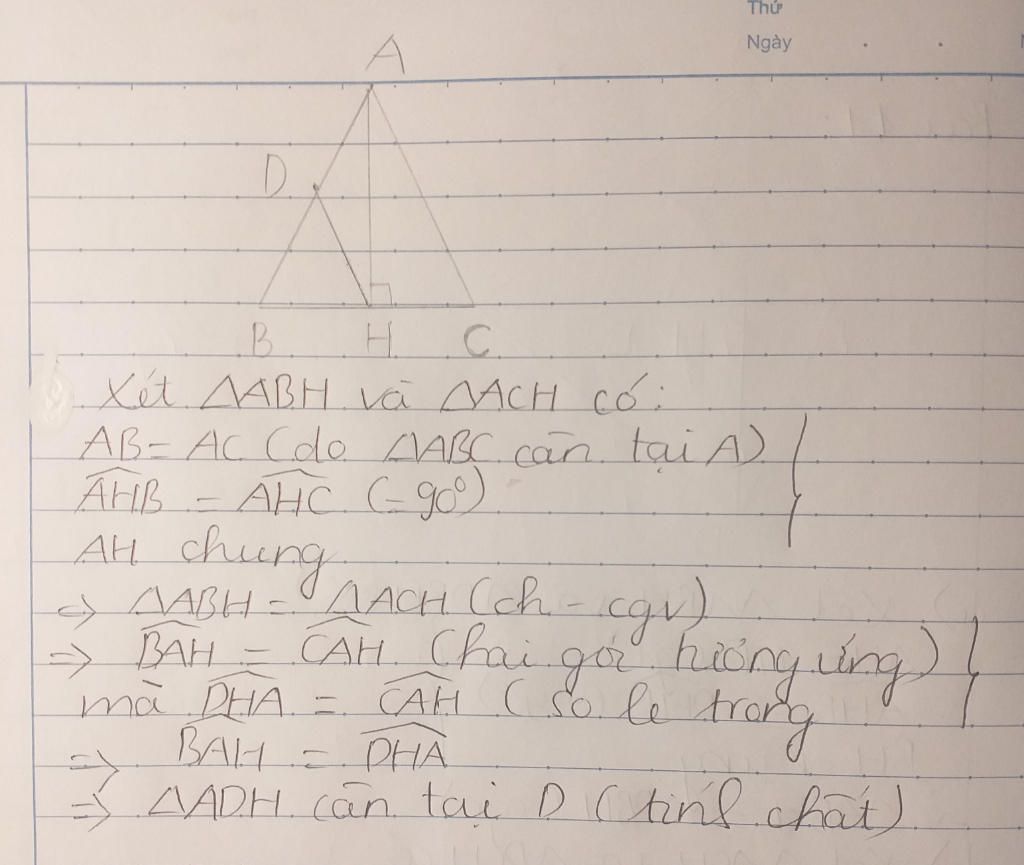 Thứ
Ngày
A
D
B H C
Xét △ABH và △ACH có:
AB = AC (do △ABC cân tại A)
AHB = AHC (= 90°)
AH chung
=> △ABH = △ACH (ch - cgv)
=> BAH = CAH (hai góc tương ứng)
mà DHA = CAH (so le trong
=> BAH = DHA
=> △ADH cân tại D (tính chất)